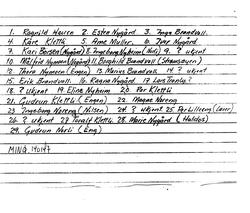 1. Ragnhild Hauren 2. Esten Nygård 3. Inga Brandvoll
4. Kåre Kletthi 5. Arne Moller. 6. Ivar Nygård
7. Kari (Nygård) 8. Ingeborg Nymoen 9. ? ukjent
10. Målfrid Nymoen (Nygård) 11. Borghild Brandvoll
12. Thora Nymoen (Engen) 13. Marius Brandvoll 14. ? ukjent
15. Erik Brandvoll. 16. Ragna Nygård 17. Lars
18. ? Ukjent 19. Eline Nyheim 20. Per Kletthi
21. Gudrun Kletthi (Engen) 22. Magne Noreng
23. Ingeborg Noreng (Nilsen) 24. ? ukjent 25. Per
26. ? ukjent 27. Toralf Kletthi. 28. Marie Nygård
29. Gudrun (Eng)
MINØ. 140147